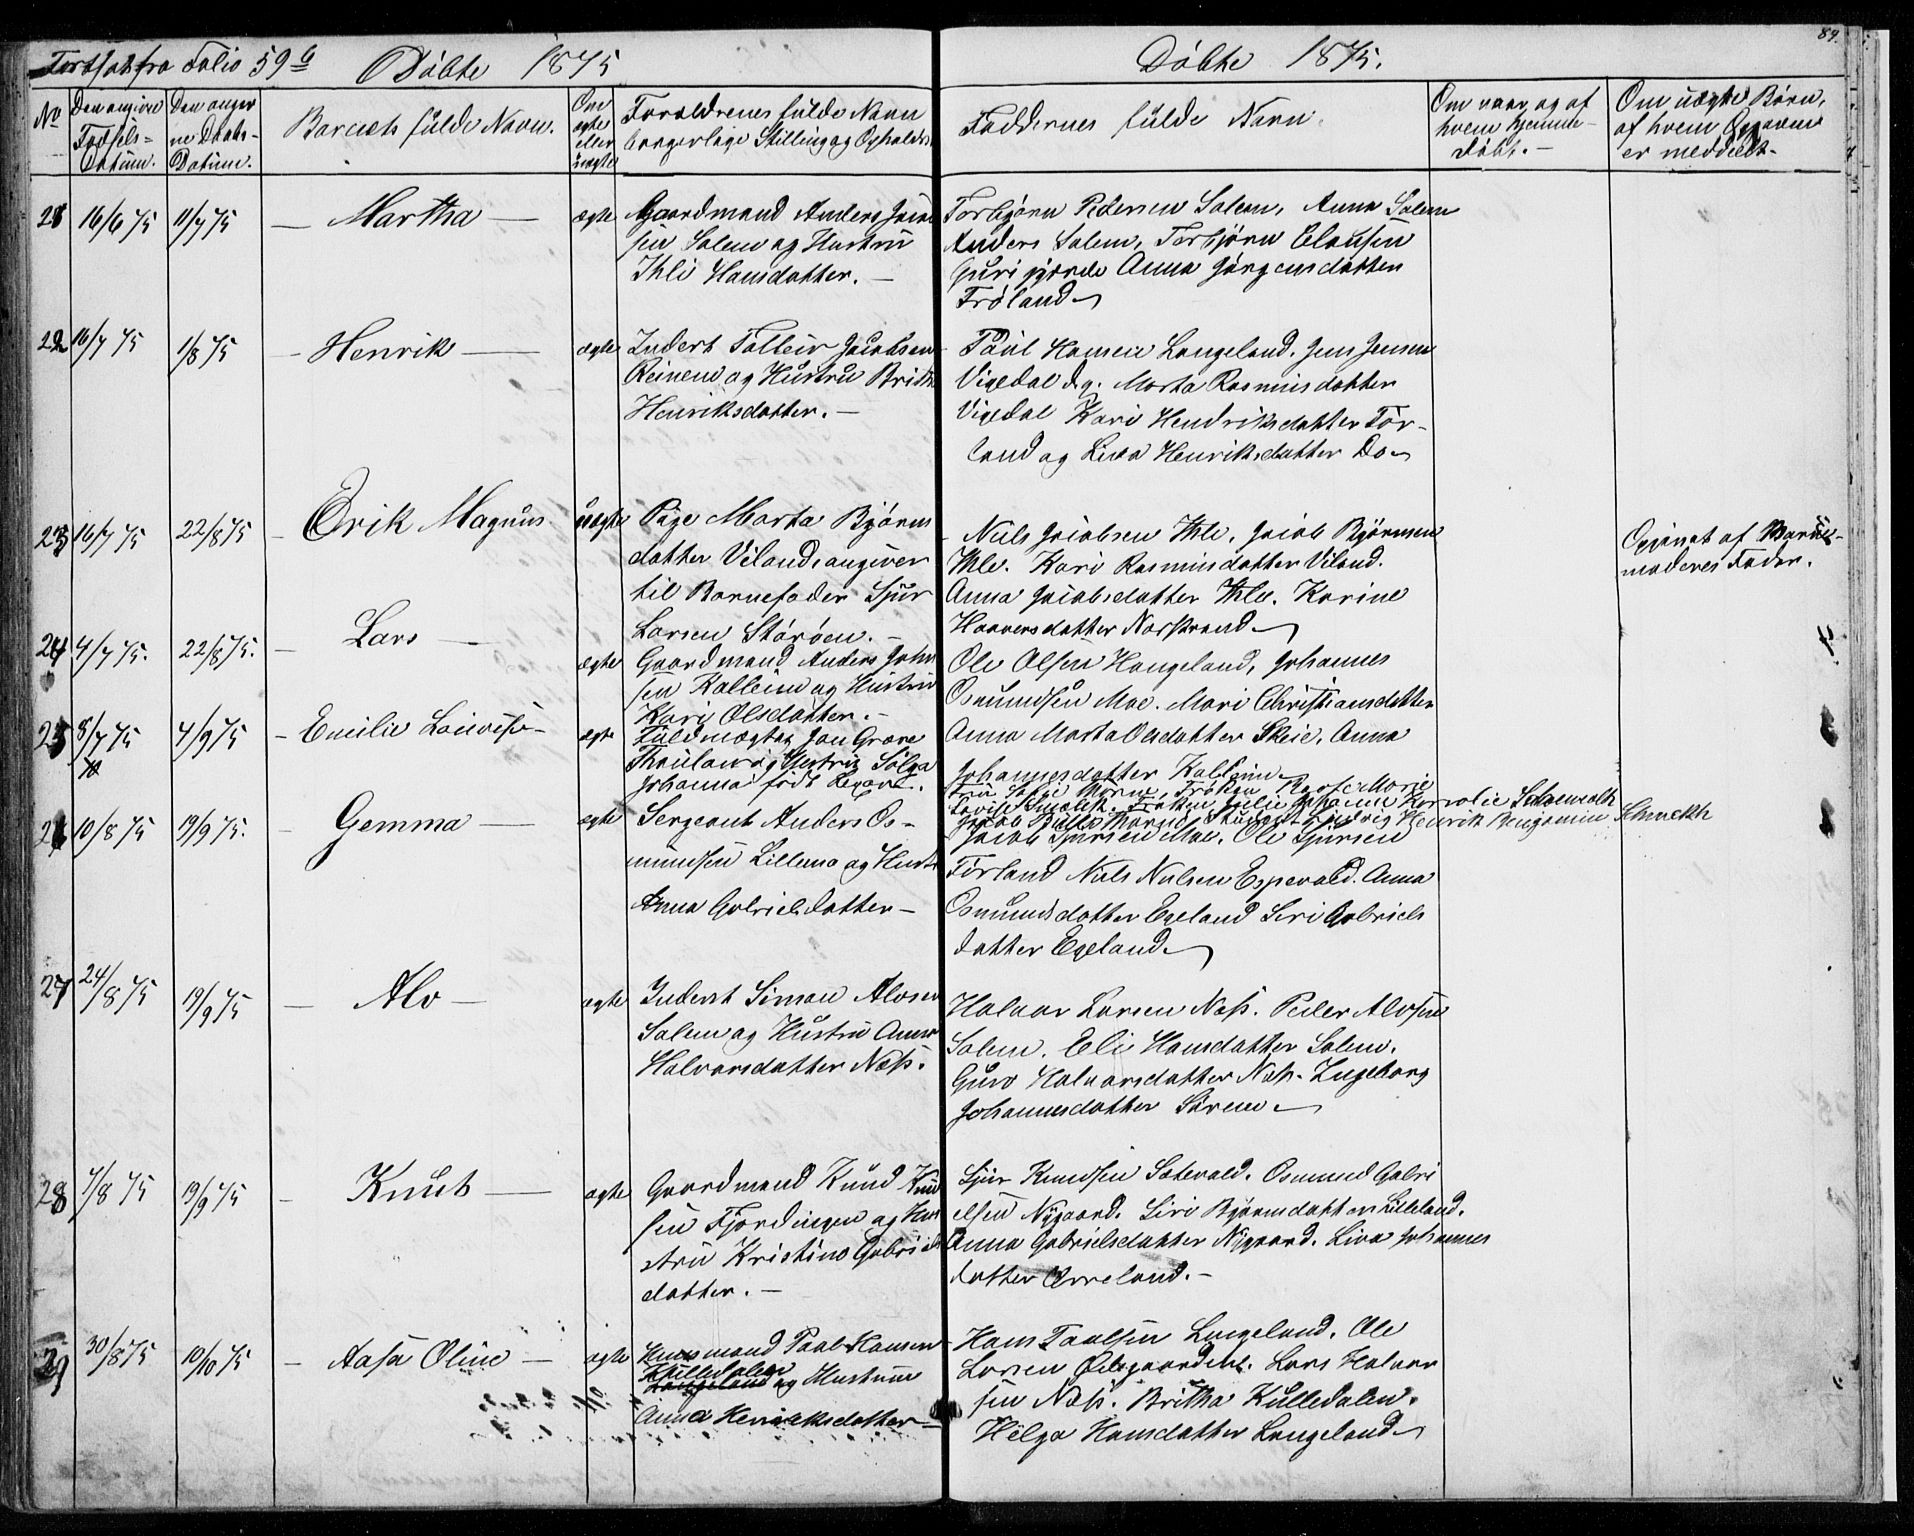 Fortsat fra Folio 59 b
Døbte 1875
Døbte 1875.
89.
No
Den angivne Fødsels-Datum.
Den angivne Daabs-Datum.
Barnets fulde Navn.
Om ægte eller uægte
Forældrenes fulde Navn borgerlige Stilling og Opholdst
Faddernes fulde Navn.
Om naar og af hvem hjemme-døbt. —
Om uægte Børn, af hvem Opgaven er meddeelt.
21 16/6 75 11/7 75 — Martha — ægte
Gaardmand Anders Jacob
sen Solem og Hustru
Ihli Hansdatter. —
Torbjørn Pedersen Solem, Anna Solem
Anders Solem, Torbjørn Clausen
Guri Anna Jørgensdatter
Frøland
22 16/7 75 1/8 75 — Henrik — ægte
Inderst Tolleiv Jacobsen
Reinem og Hustru Britha
Henriksdatter. —
Paul Hansen Langeland. Jens Jensen
Vigedal dg. Marta Rasmusdatter
Vigedal Kari Hendriksdatter Tør-
land og Liva Henriksdatter Do
23 16/7 75 22/8 75 — Erik Magnus uægte
Pige Marta Bjørns
datter Viland, angiver
til Barnefader Sjur
Larsen Størøen. —
Nils Jacobsen Thle, Jacob Bjørnsen
Thle. Kari Rasmusdatter Viland.
Anna Jacobsdatter Thle. Karine
Haaversdatter Norstrand
Opgivet af Barne-
moderes Fader.
24 4/7 75. 22/8 75. — Lars — ægte
Gaardmand Anders John
sen Kalleim og Hustru
Kari Olsdatter. —
Ole Olsen Haugeland, Johannes
Osmundsen Moe. Mari Christiansdatter
Anna Marta Olsdatter Skeie. Anna
Johannesdatter Kalleim
25 8/7 75 4/9 75 — Emilie Lovise — ægte
Fuldmægtig Jan Greve
Thaulow og Hustru Sølga
Johanna født
Fru Marie, Frøken Marie
Lovise Smelck. Frøken Julie Johanne Karolie Schmelck
Jacob Student Ludvig Henrik Benjamin Schmelck
26 10/8 75 19/9 75. — Gemma — ægte
Sergeant Anders Os-
mundsen Lillemo og Hustr
Anna Gabrielsdatter —
Jacob Sjursen Moe. Ole Sjursen
Tørland Niels Nielsen Espevold. Anna
Osmundsdatter Egeland Siri Gabriels
datter Egeland
27 24/8 75 19/9 75 — Alv — ægte
Inderst Simon Alvsen
Solem og Hustru Anna
Halvorsdatter Næss.
Halvor Larsen Næss. Peder Alvsen
Solem. Eli Hansdatter Solem.
Guro Halvorsdatter Næss. Ingeborg
Johannesdatter Sørem
28 7/8 75 19/9 75 — Knut — ægte
Gaardmand Knud Knud
sen Fjordingen og Hu
stru Kristine Gabriels
datter. —
Sjur Knudsen Solevold. Osmund Gabri
elsen Nygaard. Siri Bjørnsdatter Lilleland.
Anna Gabrielsdatter Nygaard. Liva Johannes
datter Ørreland. —
29 30/8 75 10/10 75 — Aasa Oline — ægte
Husmand Paal Hansen
Kulledalen
Langeland og Hustrue
Anna Henriksdatter —
Hans Paulsen Langeland. Ole
Larsen Ødegaarden. Lars Halvor
sen Næss. Britha Kulledalen.
Helga Hansdatter Langeland